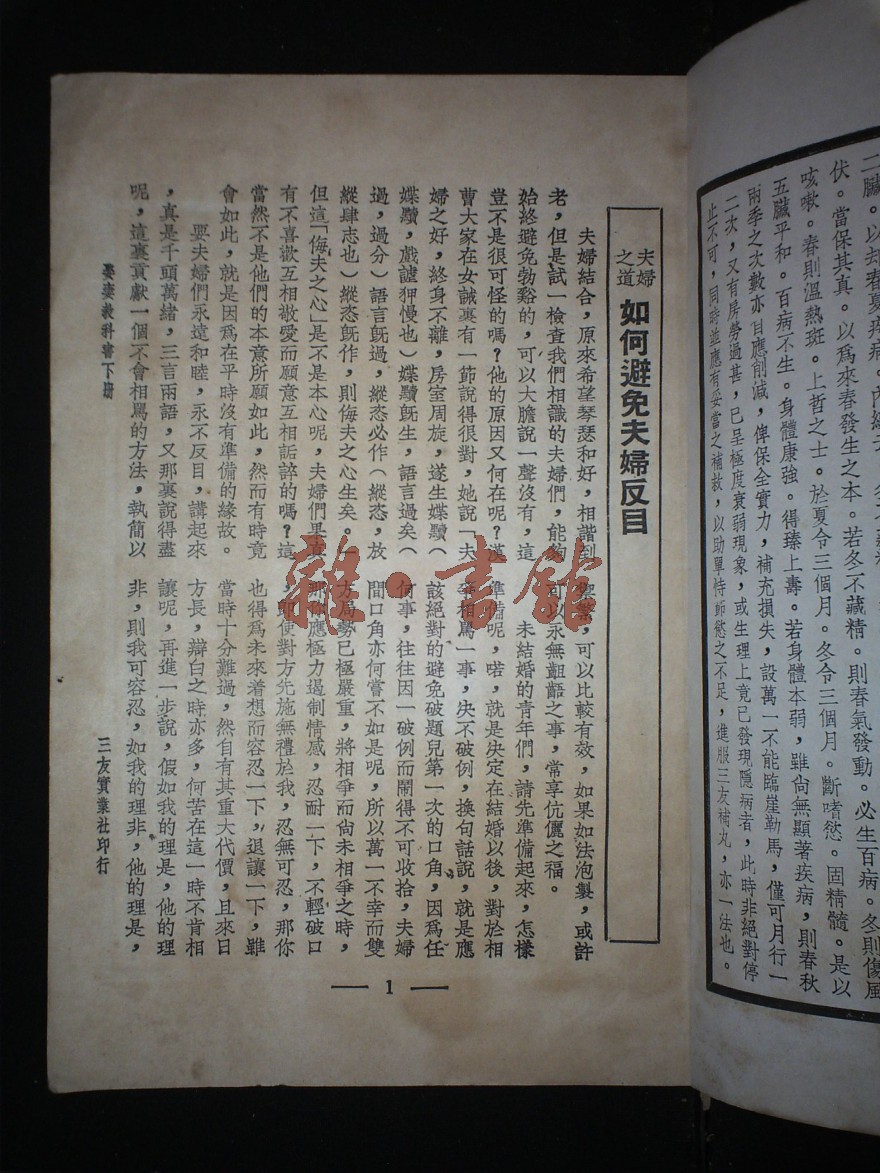 伏。當保其真。以爲來春發生之本。若冬不藏精。則春氣發動。必生百病。冬則傷風
咳嗽。春則溫熱斑。上哲之士。於夏令三個月。冬令三個月。斷嗜慾。固精髓。是以
五臟平和。百病不生。身體康強。得臻上壽。若身體本弱，雖尙無顯著疾病，則春秋
兩季之次數亦自應削減，俾保全實力，補充損失，設萬一不能臨崖勒馬，僅可月行一
二次，又有房勞過甚，已呈極度衰弱現象，或生理上竟已發現隱病者，此時非絕對停
止不可，同時並應有妥當之補救，以助單恃節慾之不足，進服三友補丸，亦一法也。
夫婦之道
如何避免夫婦反目
夫婦結合，原來希望琴瑟和好，相諧到
老，但是試一檢查我們相識的夫婦們，能夠
始終避免勃谿的，可以大膽說一聲沒有，這
豈不是很可怪的嗎？他的原因又何在呢？漢
曹大家在女誡裏有一節說得很對，她說「夫
婦之好，終身不離，房室周旋，遂生媟黷（
媟黷，戲謔狎慢也）媟黷旣生，語言過矣（
過，過分）語言旣過，縱恣必作（縱恣，放
縱肆志也）縱恣旣作，則侮夫之心生矣。」
但這「侮夫之心」是不是本心呢，夫婦們果真
有不喜歡互相敬愛而願意互相詬誶的嗎？這
當然不是他們的本意所願如此，然而有時竟
會如此，就是因爲在平時沒有準備的緣故。
要夫婦們永遠和睦，永不反目，講起來
，真是千頭萬緒，三言兩語，又那裏說得盡
呢，這裏貢獻一個不會相罵的方法，執簡以
馭繁，可以比較有效，如果如法泡製，或許
可以永無齟齬之事，常享伉儷之福。
未結婚的青年們，請先準備起來，怎樣
準備呢，喏，就是決定在結婚以後，對於相
爭相罵一事，決不破例，換句話說，就是應
該絕對的避免破題兒第一次的口角，因爲任
何事，往往因一破例而鬧得不可收拾，夫婦
間口角亦何嘗不如是呢，所以萬一不幸而雙
方局勢已極嚴重，將相爭而尙未相爭之時，
那你應極力遏制情感，忍耐一下，不輕破口
，卽使對方先施無禮於我，忍無可忍，那你
也得爲未來着想而容忍一下，退讓一下，雖
當時十分難過，然自有其重大代價，且來日
方長，辯白之時亦多，何苦在這一時不肯相
讓呢，再進一步說，假如我的理是，他的理
非，則我可容忍，如我的理非，他的理是，
娶妻教科書下册
三友實業社印行
1
雜·書館